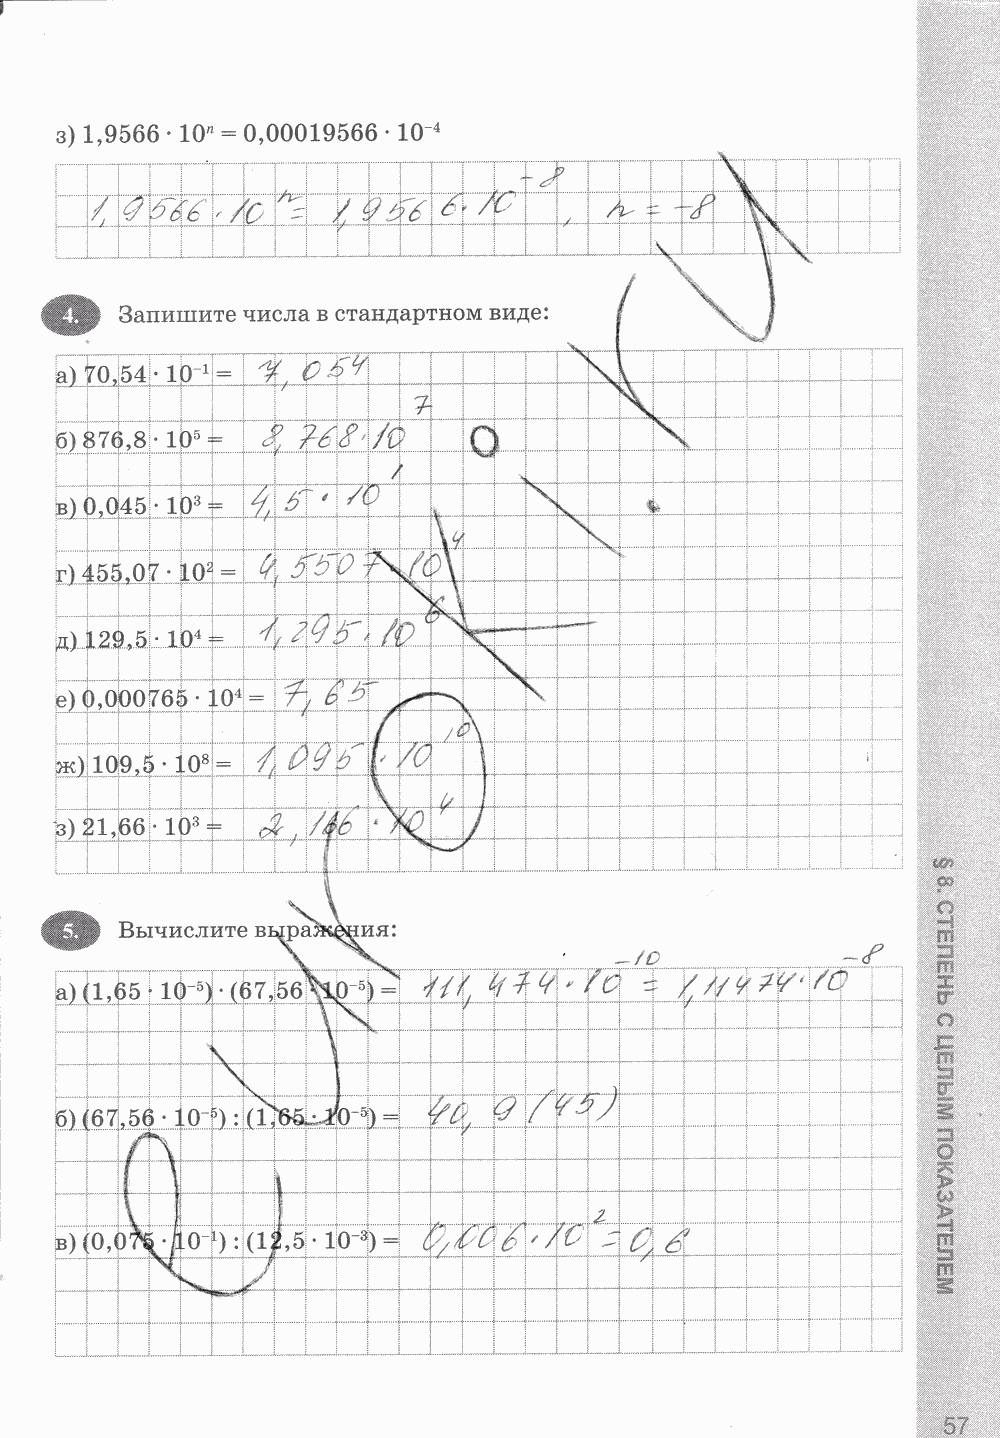 з) 1,9566 · 10ⁿ = 0,00019566 · 10⁻⁴
1,9566 · 10ⁿ = 1,9566 · 10⁻⁸, n = -8
4. Запишите числа в стандартном виде:
а) 70,54 · 10⁻¹ = 7,054
б) 876,8 · 10⁵ = 8,768 · 10⁷
в) 0,045 · 10³ = 4,5 · 10¹
г) 455,07 · 10² = 4,5507 · 10⁴
д) 129,5 · 10⁴ = 1,295 · 10⁶
е) 0,000765 · 10⁴ = 7,65
ж) 109,5 · 10⁸ = 1,095 · 10¹⁰
з) 21,66 · 10³ = 2,166 · 10⁴
5. Вычислите выражения:
а) (1,65 · 10⁻⁵) · (67,56 · 10⁻⁵) = 111,474 · 10⁻¹⁰ = 1,11474 · 10⁻⁸
б) (67,56 · 10⁻⁵) : (1,65 · 10⁻⁵) = 40,9(45)
в) (0,075 · 10⁻¹) : (12,5 · 10⁻³) = 0,006 · 10² = 0,6
§ 8. СТЕПЕНЬ С ЦЕЛЫМ ПОКАЗАТЕЛЕМ
57